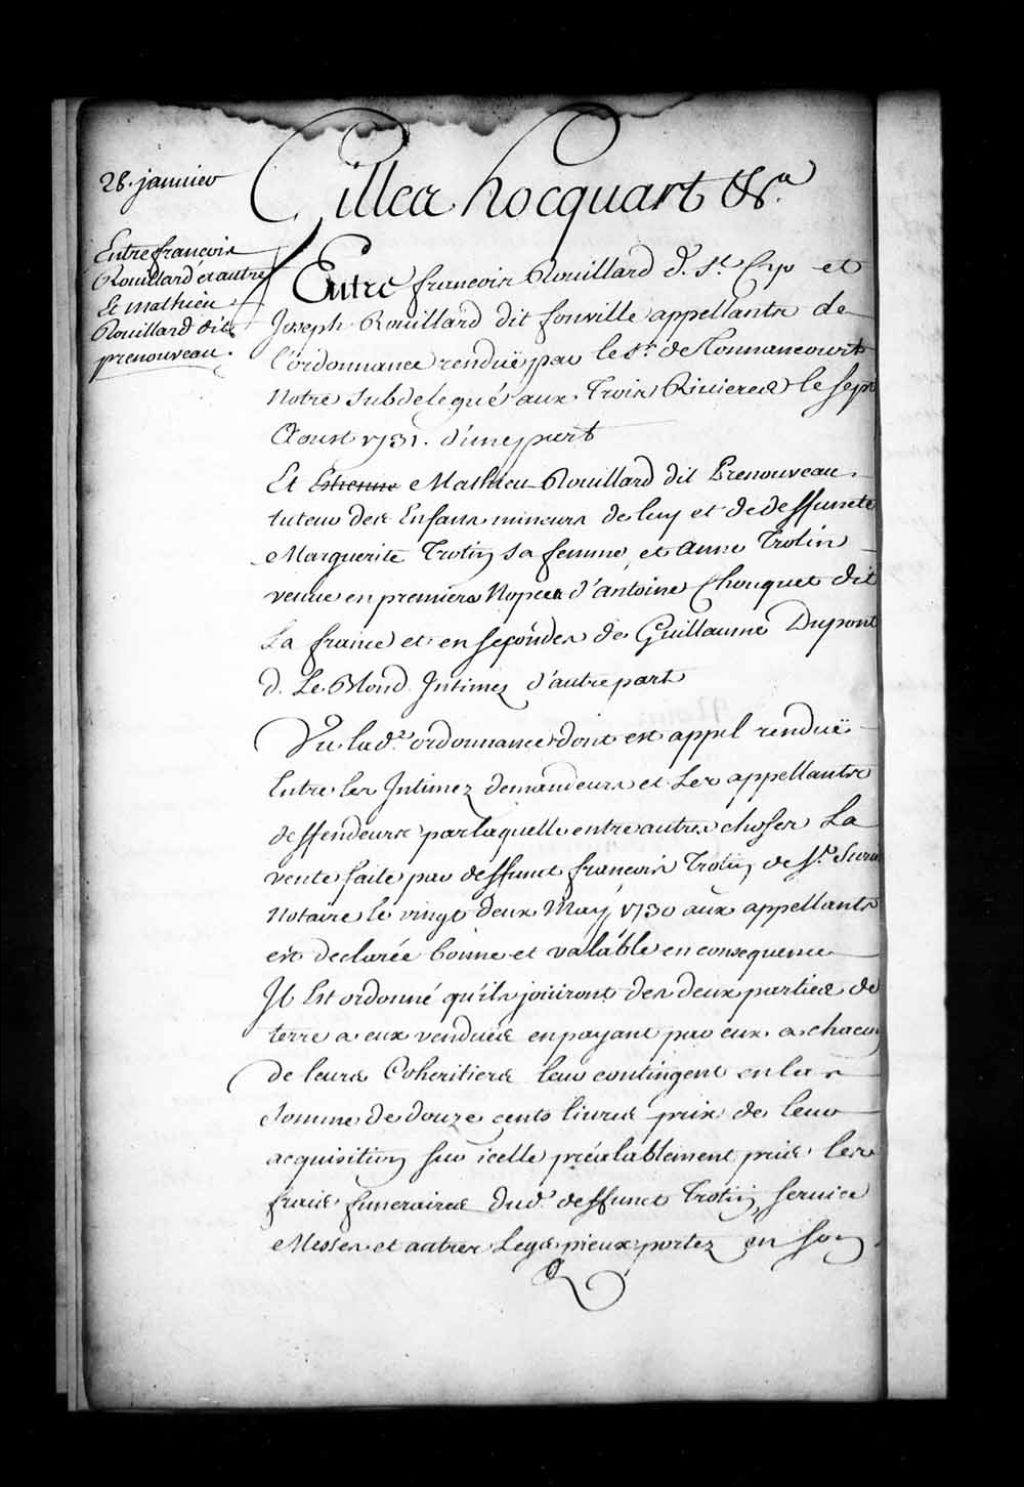 28. janvier
Gilles hocquart &ca.
Entre françois
Rouillard et autre
Et mathieu
Rouillard dit
prenouveau.
Entre françois Rouillard d. St. Cyr et
Joseph Rouillard dit fonville appellants de
l'ordonnance renduë par le Sr. de Tonnancourt
Notre Subdelegué aux Trois Rivieres le Sept
Aoust 1731. d'une part
Et Estienne Mathieu Rouillard dit Prenouveau
tuteur des Enfans mineurs de luy et de deffuncte
Marguerite Trotin sa femme, et anne Trotin
veuve en premiers Nopces d'antoine Chouquet dit
La france et en secondes de Guillaume Dupont
d. Le Blond Intimez d'autre part
Vu lade. ordonnance dont est appel renduë
Entre les Intimez demandeurs et Les appellants
deffendeurs par laquelle entre autres choses La
vente faite par deffunct françois Trotin de St. Surin
Notaire le vingt deux May 1730 aux appellants
est declarée bonne et valable en consequence
Il Est ordonné qu'ils jouiront des deux parties de
terre a eux venduës en payant par eux a chacun
de leurs Coheritiers leur contingent en la
somme de douze cents livres prix de leur
acquisition sur icelle préalablement pris les
frais funeraires dud. deffunct Trotin, Service
Messes et autres Legs pieux portez en son